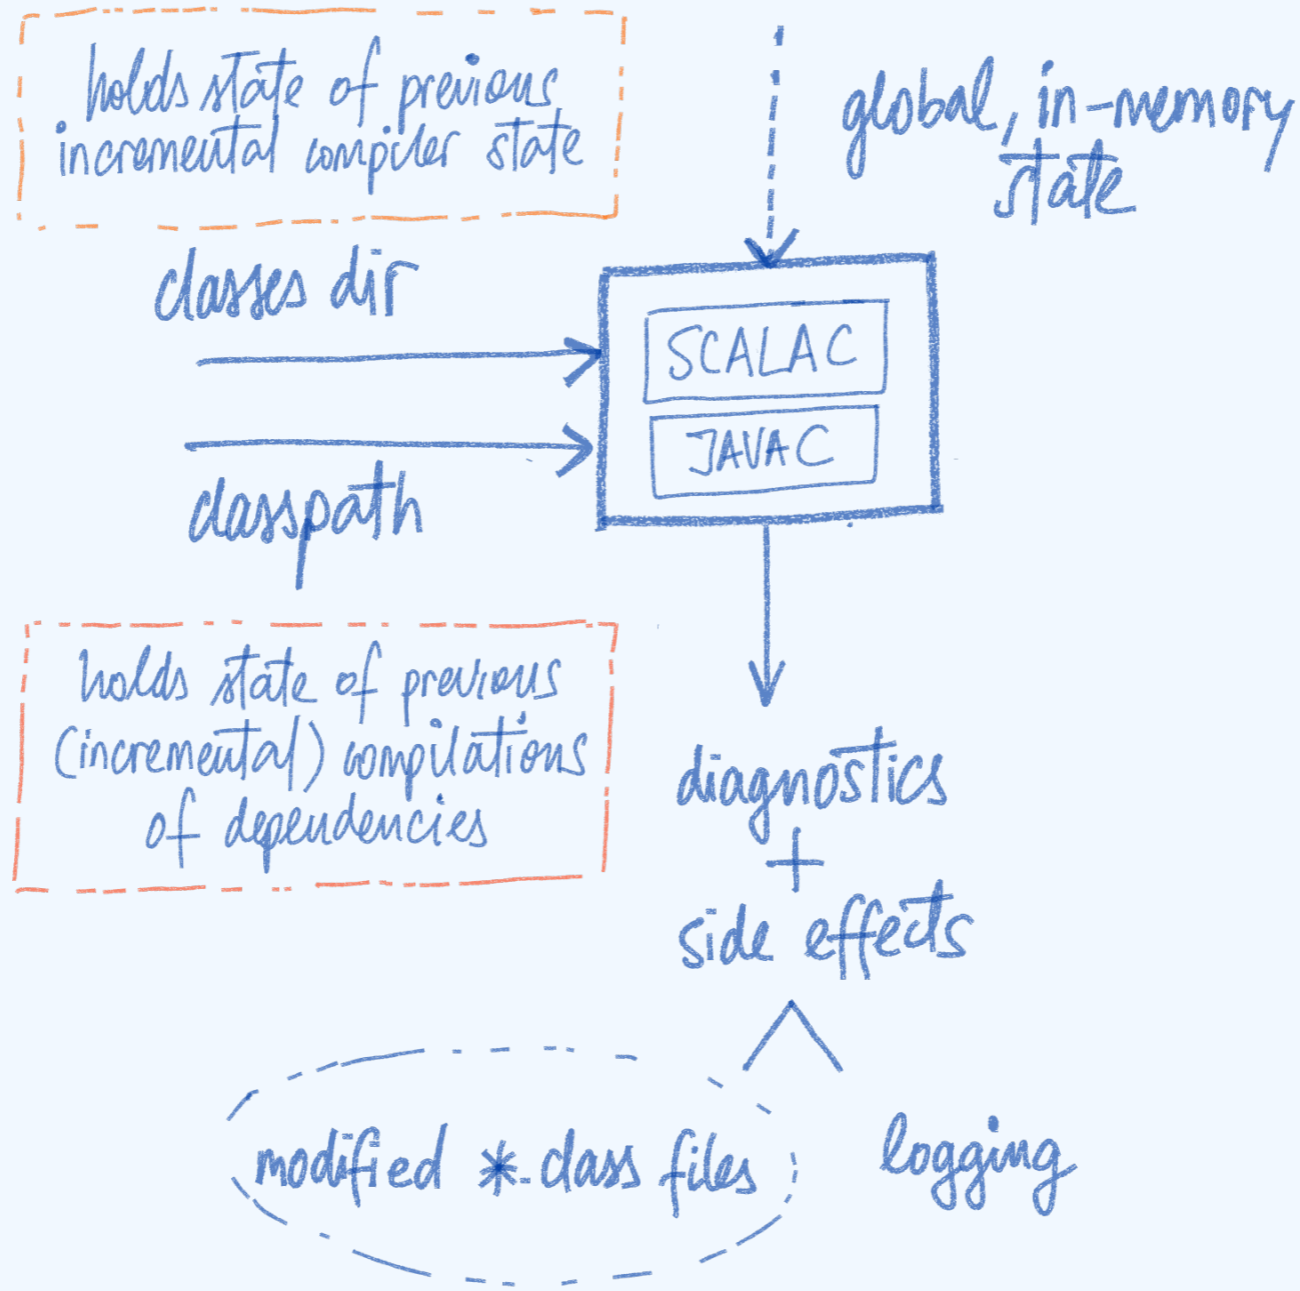 holds state of previous
incremental compiler state
global, in-memory
state
classes dir
SCALAC
JAVAC
classpath
holds state of previous
(incremental) compilations
of dependencies
diagnostics
+
side effects
modified *.class files
logging